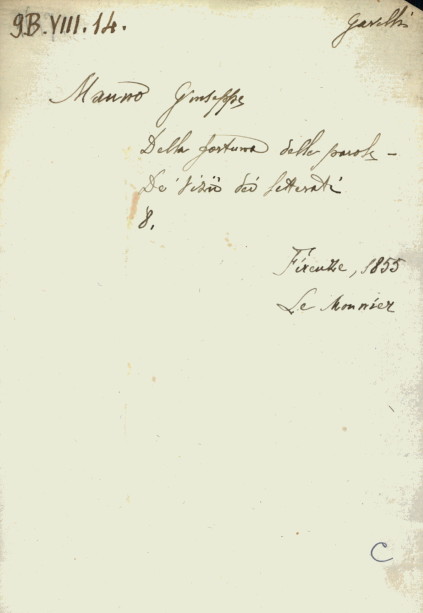 9.B.VIII.14.
Manno Giuseppe
Della fortuna delle parole –
De' vizii dei letterati
8.
Firenze, 1855
Le Monnier
C